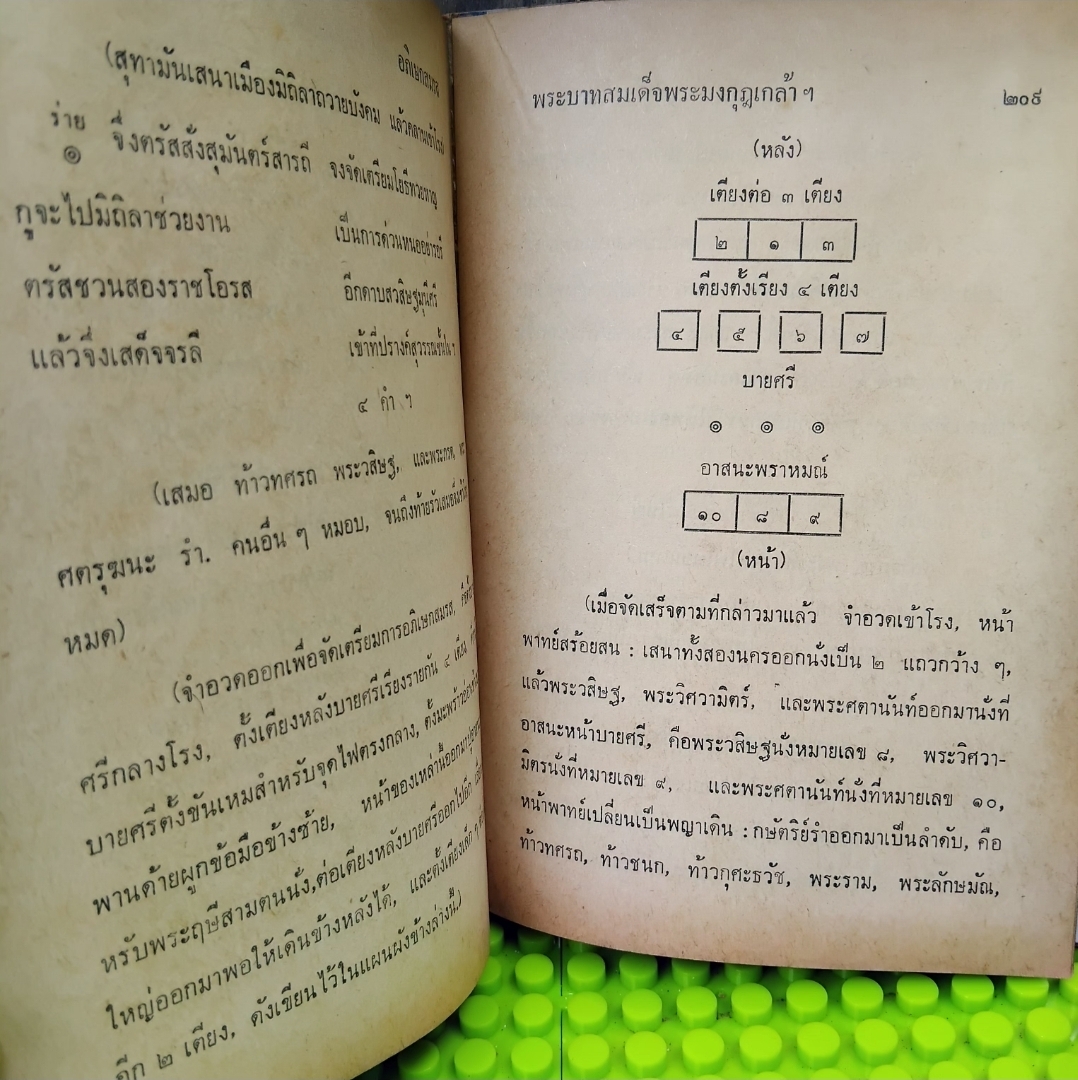 อภิเษกสมรส
(สุทามันเสนาเมืองมิถิลาถวายบังคม แล้วคลานเข้าโรง)
ร่าย
๏ จึ่งตรัสสั่งสุมันตร์สารถี จงจัดเตรียมโยธีทวยหาญ
กูจะไปมิถิลาช่วยงาน เป็นการด่วนหนออย่ารอรี
ตรัสชวนสองราชโอรส อีกดาบสวสิษฐมุนีศรี
แล้วจึ่งเสด็จจรลี เข้าที่ปรางค์สุวรรณชั้นใน ฯ
๔ คำ ฯ
(เสมอ ท้าวทศรถ พระวสิษฐ, และพระภรต, พระ
ศตรุฆนะ รำ. คนอื่น ๆ หมอบ, จนถึงท้ายรัวเสมอจึ่งเข้าโรง
หมด)
(จำอวดออกเพื่อจัดเตรียมการอภิเษกสมรส,
ศรีกลางโรง, ตั้งเตียงหลังบายศรีเรียงรายกัน ๔ เตียง,
บายศรีตั้งขันเหมสำหรับจุดไฟตรงกลาง, ตั้งมะพร้าวอ่อน
พานด้ายผูกข้อมือข้างซ้าย, หน้าของเหล่านี้ออกมา
หรับพระฤษีสามตนนั่ง, ต่อเตียงหลังบายศรีออกไปอีก
ใหญ่ออกมาพอให้เดินข้างหลังได้, และตั้งเตียงเล็ก ๆ
อีก ๒ เตียง, ดังเขียนไว้ในแผนผังข้างล่างนี้.)
พระบาทสมเด็จพระมงกุฎเกล้า ฯ ๒๐๙
(หลัง)
เตียงต่อ ๓ เตียง
๒ ๑ ๓
เตียงตั้งเรียง ๔ เตียง
๔ ๕ ๖ ๗
บายศรี
๏ ๏ ๏
อาสนะพราหมณ์
๑๐ ๘ ๙
(หน้า)
(เมื่อจัดเสร็จตามที่กล่าวมาแล้ว จำอวดเข้าโรง, หน้า
พาทย์สร้อยสน : เสนาทั้งสองนครออกนั่งเป็น ๒ แถวกว้าง ๆ,
แล้วพระวสิษฐ, พระวิศวามิตร์, และพระศตานันท์ออกมานั่งที่
อาสนะหน้าบายศรี, คือพระวสิษฐนั่งหมายเลข ๘, พระวิศวา-
มิตรนั่งที่หมายเลข ๙, และพระศตานันท์นั่งที่หมายเลข ๑๐,
หน้าพาทย์เปลี่ยนเป็นพญาเดิน : กษัตริย์รำออกมาเป็นลำดับ, คือ
ท้าวทศรถ, ท้าวชนก, ท้าวกุศะธวัช, พระราม, พระลักษมัณ,